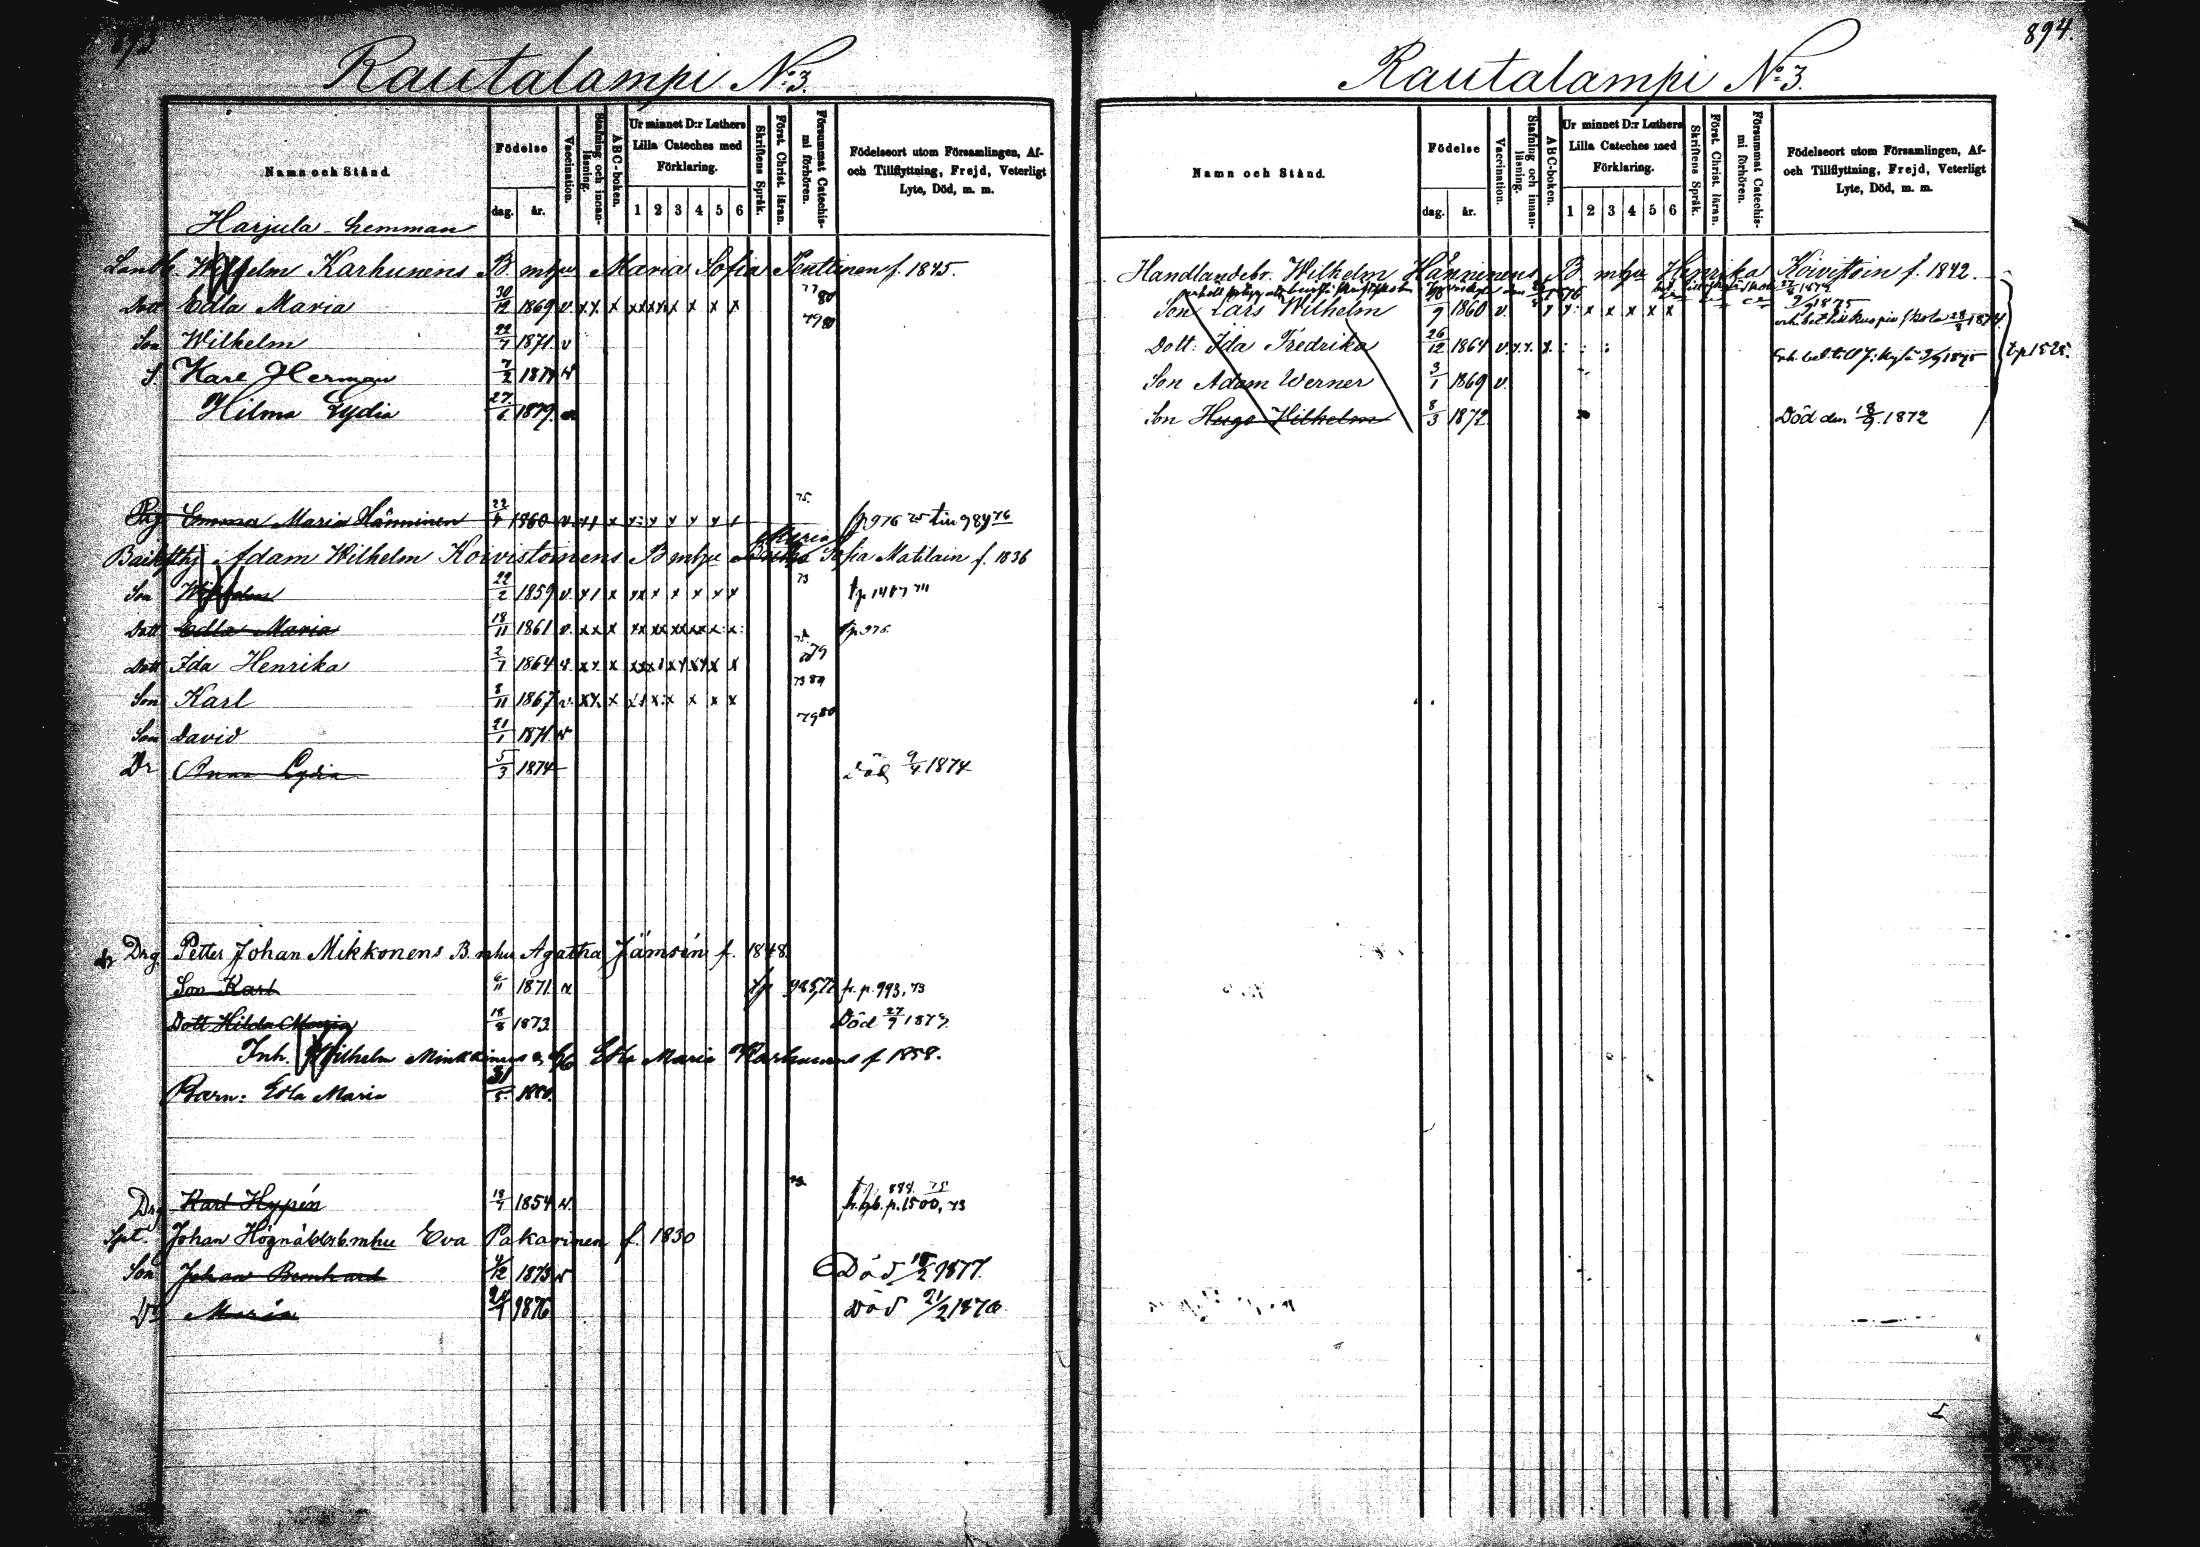 893
Rautalampi No: 3.
Namn och Stånd.
Födelse
dag. år.
Vaccination.
Stafning och innan-läsning.
ABC-boken.
Ur minnet D:r Luthers Lilla Cateches med Förklaring.
1 2 3 4 5 6
Skriftens Språk.
Först. Christ. läran.
Försummat Catechis-mi förhören.
Födelseort utom Församlingen, Af-
och Tillflyttning, Frejd, Veterligt
Lyte, Död, m. m.
Harjula hemman
Wilhelm Karhunens B. mhu Maria Sofia Penttinen f. 1845.
Dott Edla Maria 30/12 1869 v x x x x x x x x x x 77 80
Son Wilhelm 22/7 1871 v 79 80
S. Karl Herman 7/2 1874 v
Hilma Lydia 27/6 1879.
Pig Emma Maria Hänninen 1860 v. x x x x x x x 75. tp 976 75 984 76
Adam Wilhelm Koivistoinens B mhu Maria Sofia Matilain f. 1836
Son Wilhelm 22/2 1859 v. x x x x x x x x x 73
Dott Edla Maria 18/11 1861 v. x x x x x x x x x x x: x: tp 976
Dott Ida Henrika 2/1 1864 v. x x x x x x x x x x x x 79
Son Karl 8/11 1867 v. x x. x x x x x x 79 80
Son David 21/1 1871 v 79 80
Dr Anna Lydia 5/3 1874 Död 9/4 1874
Drg Petter Johan Mikkonens B. mhu Agatha Jämsén f. 1848.
Son Karl 6/11 1871. v tp 985,77 fr. p. 993, 73
Dott Hilda Maria 18/8 1873 Död 27/9 1873.
Inh. Wilhelm Minkkinens Edla Maria Karhunens f 1858.
Barn: Edla Maria 31/5 1880.
Drg Karl Hypén 1854 v. fr. p. 1500, 73
Johan Högnäbbs b. mhu Eva Pakarinen f. 1830
Son Johan Bernhard 4/12 1873 v Död 18/2 1877.
Dr Maria 1876 Död 21/2 1876
894.
Rautalampi No: 3.
Namn och Stånd.
Födelse
dag. år.
Vaccination.
Stafning och innan-läsning.
ABC-boken.
Ur minnet D:r Luthers Lilla Cateches med Förklaring.
1 2 3 4 5 6
Skriftens Språk.
Först. Christ. läran.
Försummat Catechis-mi förhören.
Födelseort utom Församlingen, Af-
och Tillflyttning, Frejd, Veterligt
Lyte, Död, m. m.
Handlandebr. Wilhelm Hänninens B mhu Henrika Koivistoin f. 1842.
Son Lars Wilhelm 1860 v. x x x x x x x
Dott: Ida Fredrika 26/12 1864 v. x. x. x.
Son Adam Werner 3/1 1869 v. tp 1525.
Son Hugo Wilhelm 8/3 1872 Död den 18/9. 1872